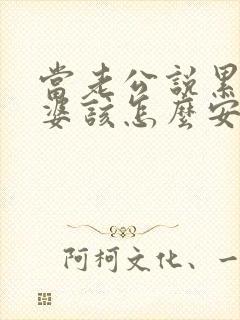 當老公說累
婆該怎麼安
阿柯文化、一